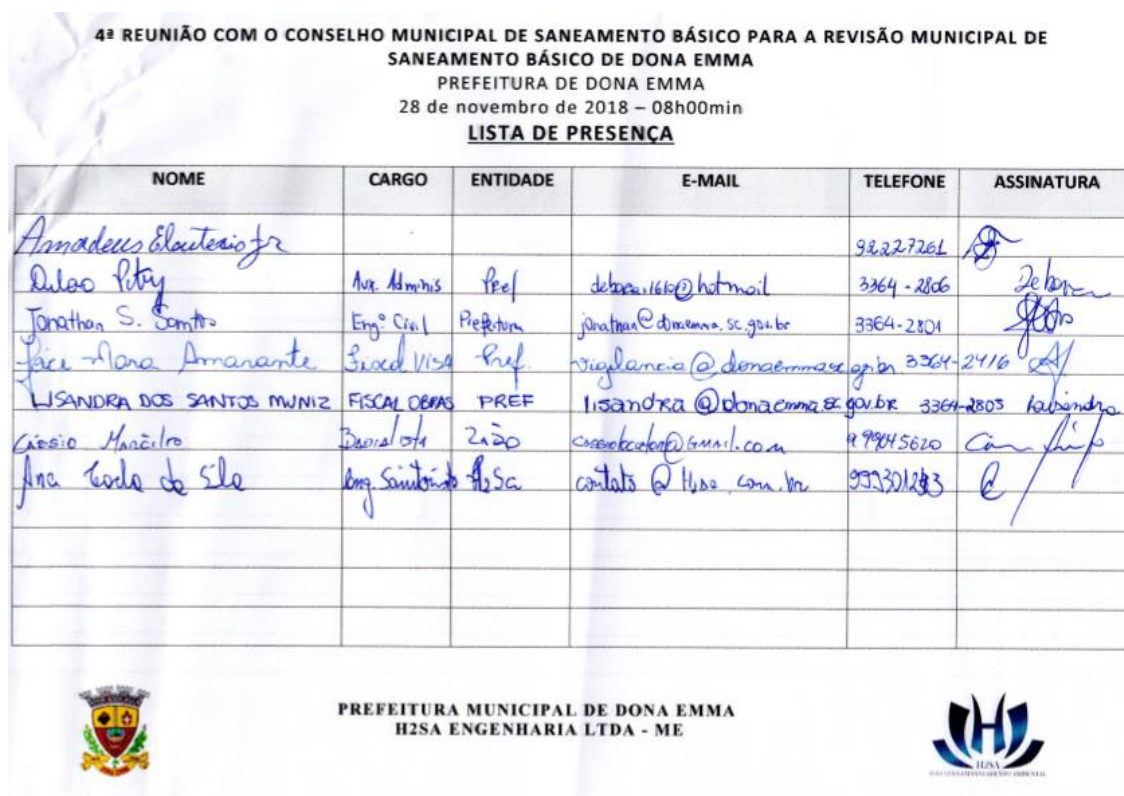 4ª REUNIÃO COM O CONSELHO MUNICIPAL DE SANEAMENTO BÁSICO PARA A REVISÃO MUNICIPAL DE
SANEAMENTO BÁSICO DE DONA EMMA
PREFEITURA DE DONA EMMA
28 de novembro de 2018 – 08h00min
LISTA DE PRESENÇA
NOME CARGO ENTIDADE E-MAIL TELEFONE ASSINATURA
Amadeus Eleuterio Jr 98227261
Petry Aux. Adminis Pref 3364-2806 Debora
Jonathan S. Santos Eng° Civil Prefeitura jonathan@donaemma.sc.gov.br 3364-2801
Mara Amarante Fiscal VISA Pref. vigilancia@donaemma.sc.gov.br 3364-2416
LISANDRA DOS SANTOS MUNIZ FISCAL OBRAS PREF lisandra@donaemma.sc.gov.br 3364-2805 Lisandra
Cássio
Ana Carla da Silva Eng. Sanitarista H2Sa contato@H2sa.com.br
PREFEITURA MUNICIPAL DE DONA EMMA
H2SA ENGENHARIA LTDA - ME
H2SA